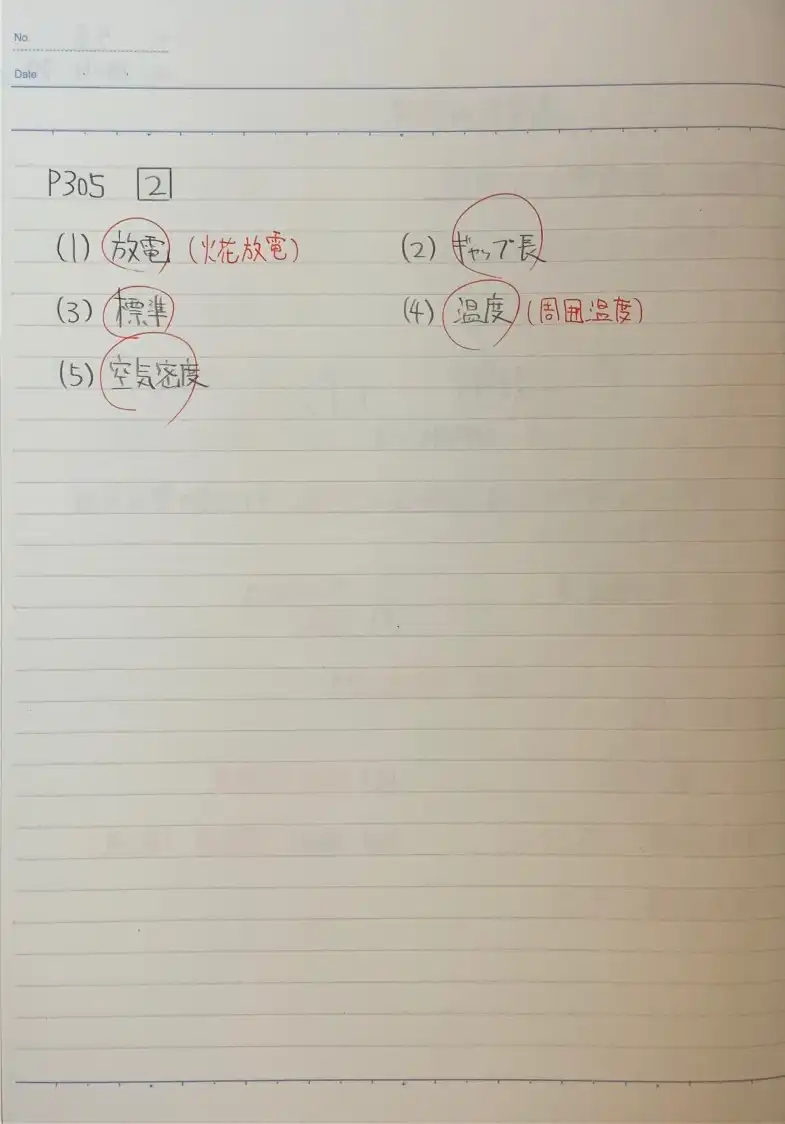 No.
Date
P305 2
(1) 放電 (火花放電) (2) ギャップ長
(3) 標準 (4) 温度 (周囲温度)
(5) 空気密度